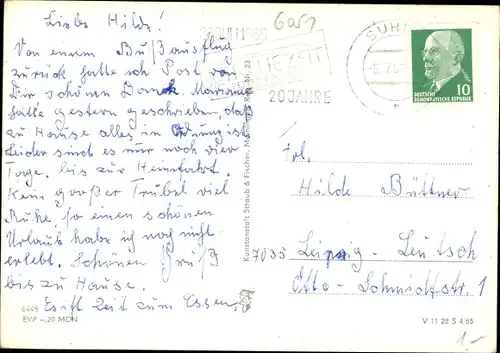 Liebe Hilde!
Von einem Bußausflug
zurück, hatte ich Post von
Dir schönen Dank. Marianne
hatte gestern geschrieben, daß
zu Hause alles in Ordnung ist.
Leider sind es nur noch vier
Tage, bis zur Heimfahrt.
Kein großer Trubel viel
Ruhe, so einen schönen
Urlaub habe ich noch nicht
erlebt. Schönen Gruß
bis zu Hause.
Es ist Zeit zum Essen.
6445
EVP –,20 MDN
Kunstanstalt Straub & Fischer, Meiningen
6051
20 JAHRE
SUHL
DEUTSCHE
DEMOKRATISCHE REPUBLIK
10
Frl.
Hilde Büttner
7035 Leipzig - Leutzsch
Otto-Schmidtstr. 1
V 11 28 S 4/65
1.-